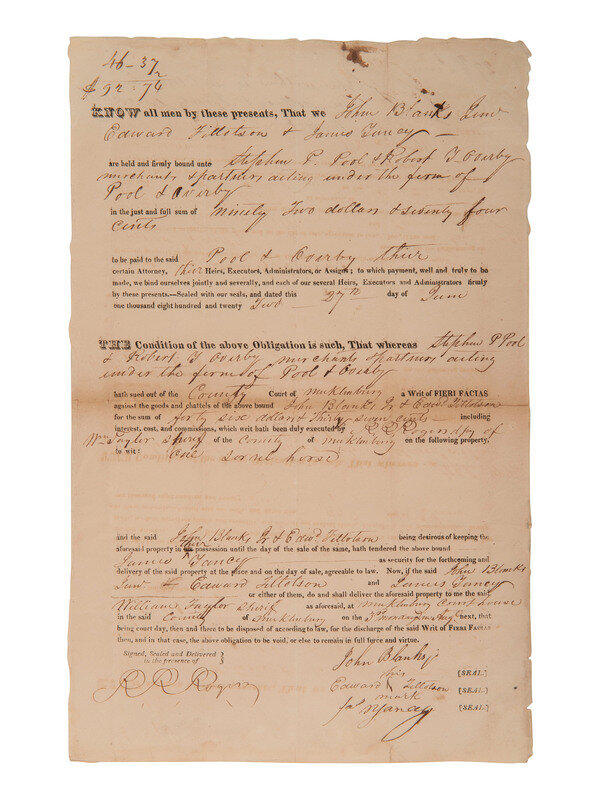 46 - 37 1/2
$ 92 : 74
KNOW all men by these presents, That we John Blanks Junr
Edward Tillotson & James Yancy
are held and firmly bound unto Stephen P. Pool & Robert Y Overby
merchants & partners acting under the firm of
Pool & Overby
in the just and full sum of ninety Two dollars & seventy four
Cents
to be paid to the said Pool & Overby thier
certain Attorney, thier Heirs, Executors, Administrators, or Assigns; to which payment, well and truly to be
made, we bind ourselves jointly and severally, and each of our several Heirs, Executors and Administrators firmly
by these presents.—Sealed with our seals, and dated this 27th day of June
one thousand eight hundred and twenty Two
THE Condition of the above Obligation is such, That whereas Stephen P Pool
& Robert Y Overby merchants & partners acting
under the firm of Pool & Overby
hath sued out of the County Court of Mecklenburg a Writ of FIERI FACIAS
against the goods and chattels of the above bound John Blanks Jr & Edwd Tillotson
for the sum of forty six dollars & Thirty seven cts including
interest, cost, and commissions, which writ hath been duly executed by R R Rogers dpy of
Wm Taylor sherif of the County of Mecklenburg on the following property,
to wit: One sorrel horse
and the said John Blanks Jr & Edwd. Tillotson being desirous of keeping the
aforesaid property in thier possession until the day of the sale of the same, hath tendered the above bound
James Yancy as security for the forthcoming and
delivery of the said property at the place and on the day of sale, agreeable to law. Now, if the said John Blanks
Junr & Edward Tillotson and James Yancy
or either of them, do and shall deliver the aforesaid property to me the said
William Taylor sherif as aforesaid, at Mecklenburg Courthouse
in the said County of Mecklenburg on the 3rd monday in Augt next, that
being court day, and then and there to be disposed of according to law, for the discharge of the said Writ of FIERI FACIAS
then, and in that case, the above obligation to be void, or else to remain in full force and virtue.
Signed, Sealed and Delivered
in the presence of
John Blanks jr
R R Rogers
his [SEAL.]
Edward Tillotson [SEAL.]
mark
Jas Yancy [SEAL.]